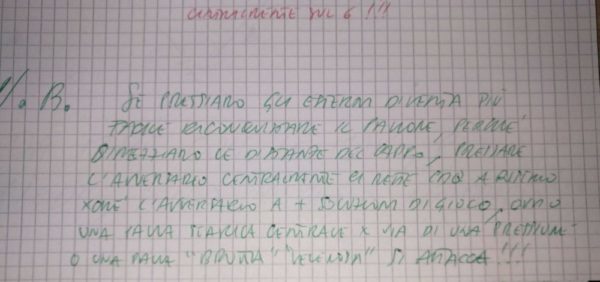 CENTRALMENTE SUL 6 !!!
N.B. SE PRESSIAMO GLI ESTERNI DIVENTA PIÙ
FACILE RICONQUISTARE IL PALLONE, PERCHÉ
DIMEZZIAMO LE DISTANZE DEL CAMPO, PRESSARE
L'AVVERSARIO CENTRALMENTE CI METTE A RISCHIO
XCHÉ L'AVVERSARIO A + SOLUZIONI DI GIOCO, OVVIO
UNA PALLA CENTRALE X VIA DI UNA PRESSIONE
O UNA PALLA "BRUTTA" "VELENOSA" SI ATTACCA !!!